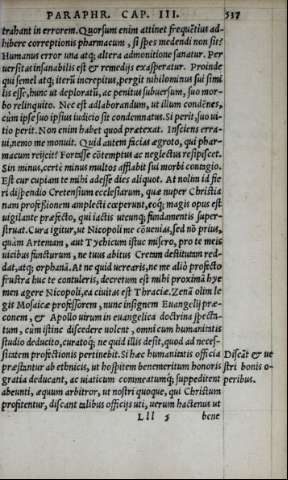 PARAPHR. CAP. III. 537
trahant in errorem. Quorsum enim attinet frequētius ad-
hibere correptionis pharmacum, si spes medendi non sit?
Humanus error una atq; altera admonitione sanatur. Per
uersitas insanabilis est & remedijs exasperatur. Proinde
qui semel atq; iterū increpitus, pergit nihilominus sui simi
lis esse, hunc ut deploratū, ac penitus subuersum, suo mor-
bo relinquito. Nec est adlaborandum, ut illum condēnes,
cùm ipse suo ipsius iudicio sit condemnatus. Si perit, suo ui-
tio perit. Non enim habet quod prætexat. Insciens erra-
ui, nemo me monuit. Quid autem facias ægroto, qui phar-
macum reijcit? Fortasse cōtemptus ac neglectus resipiscet.
Sin minus, certè minus multos afflabit sui morbi contagio.
Est cur cupiam te mihi adesse dies aliquot. At nolim id fie
ri dispendio Cretensium ecclesiarum, quæ nuper Christia
nam professionem amplecti cœperunt, eoq; magis opus est
uigilante præfecto, qui iactis utcunq; fundamentis super-
struat. Cura igitur, ut Nicopoli me cōuenias, sed nō prius,
quàm Artemam, aut Tychicum istuc misero, pro te meis
uicibus functurum, ne tuus abitus Cretam destitutam red-
dat, atq; orphanā. At ne quid uerearis, ne me aliò profecto
frustrà huc te contuleris, decretum est mihi proximā hye
mem agere Nicopoli, ea ciuitas est Thraciæ. Zenā olim le
gis Mosaicæ professorem, nunc insignem Euangelij præ-
conem, & Apollo uirum in euangelica doctrina specta-
tum, cùm istinc discedere uolent, omni cum humanitatis
studio deducito, curatoq; ne quid illis desit, quod ad neces-
sitatem professionis pertinebit. Si hæc humanitatis officia
præstantur ab ethnicis, ut hospitem benemeritum honoris
gratia deducant, ac uiaticum commeatumq; suppeditent
abeunti, æquum arbitror, ut nostri quoque, qui Christum
profitentur, discant talibus officijs uti, uerum hactenus ut
Discāt & ue
stri bonis o-
peribus.
Lll 5 bene